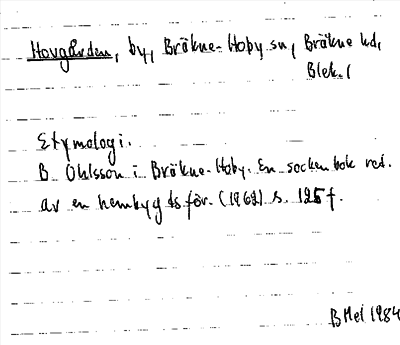 Hovgården, by, Bräkne-Hoby sn, Bräkne hd,
Blek. l
Etymologi.
B. Ohlsson i Bräkne-Hoby. En sockenbok red.
av en hembygdsför. (1962) s. 125 f.
B Mel 1984